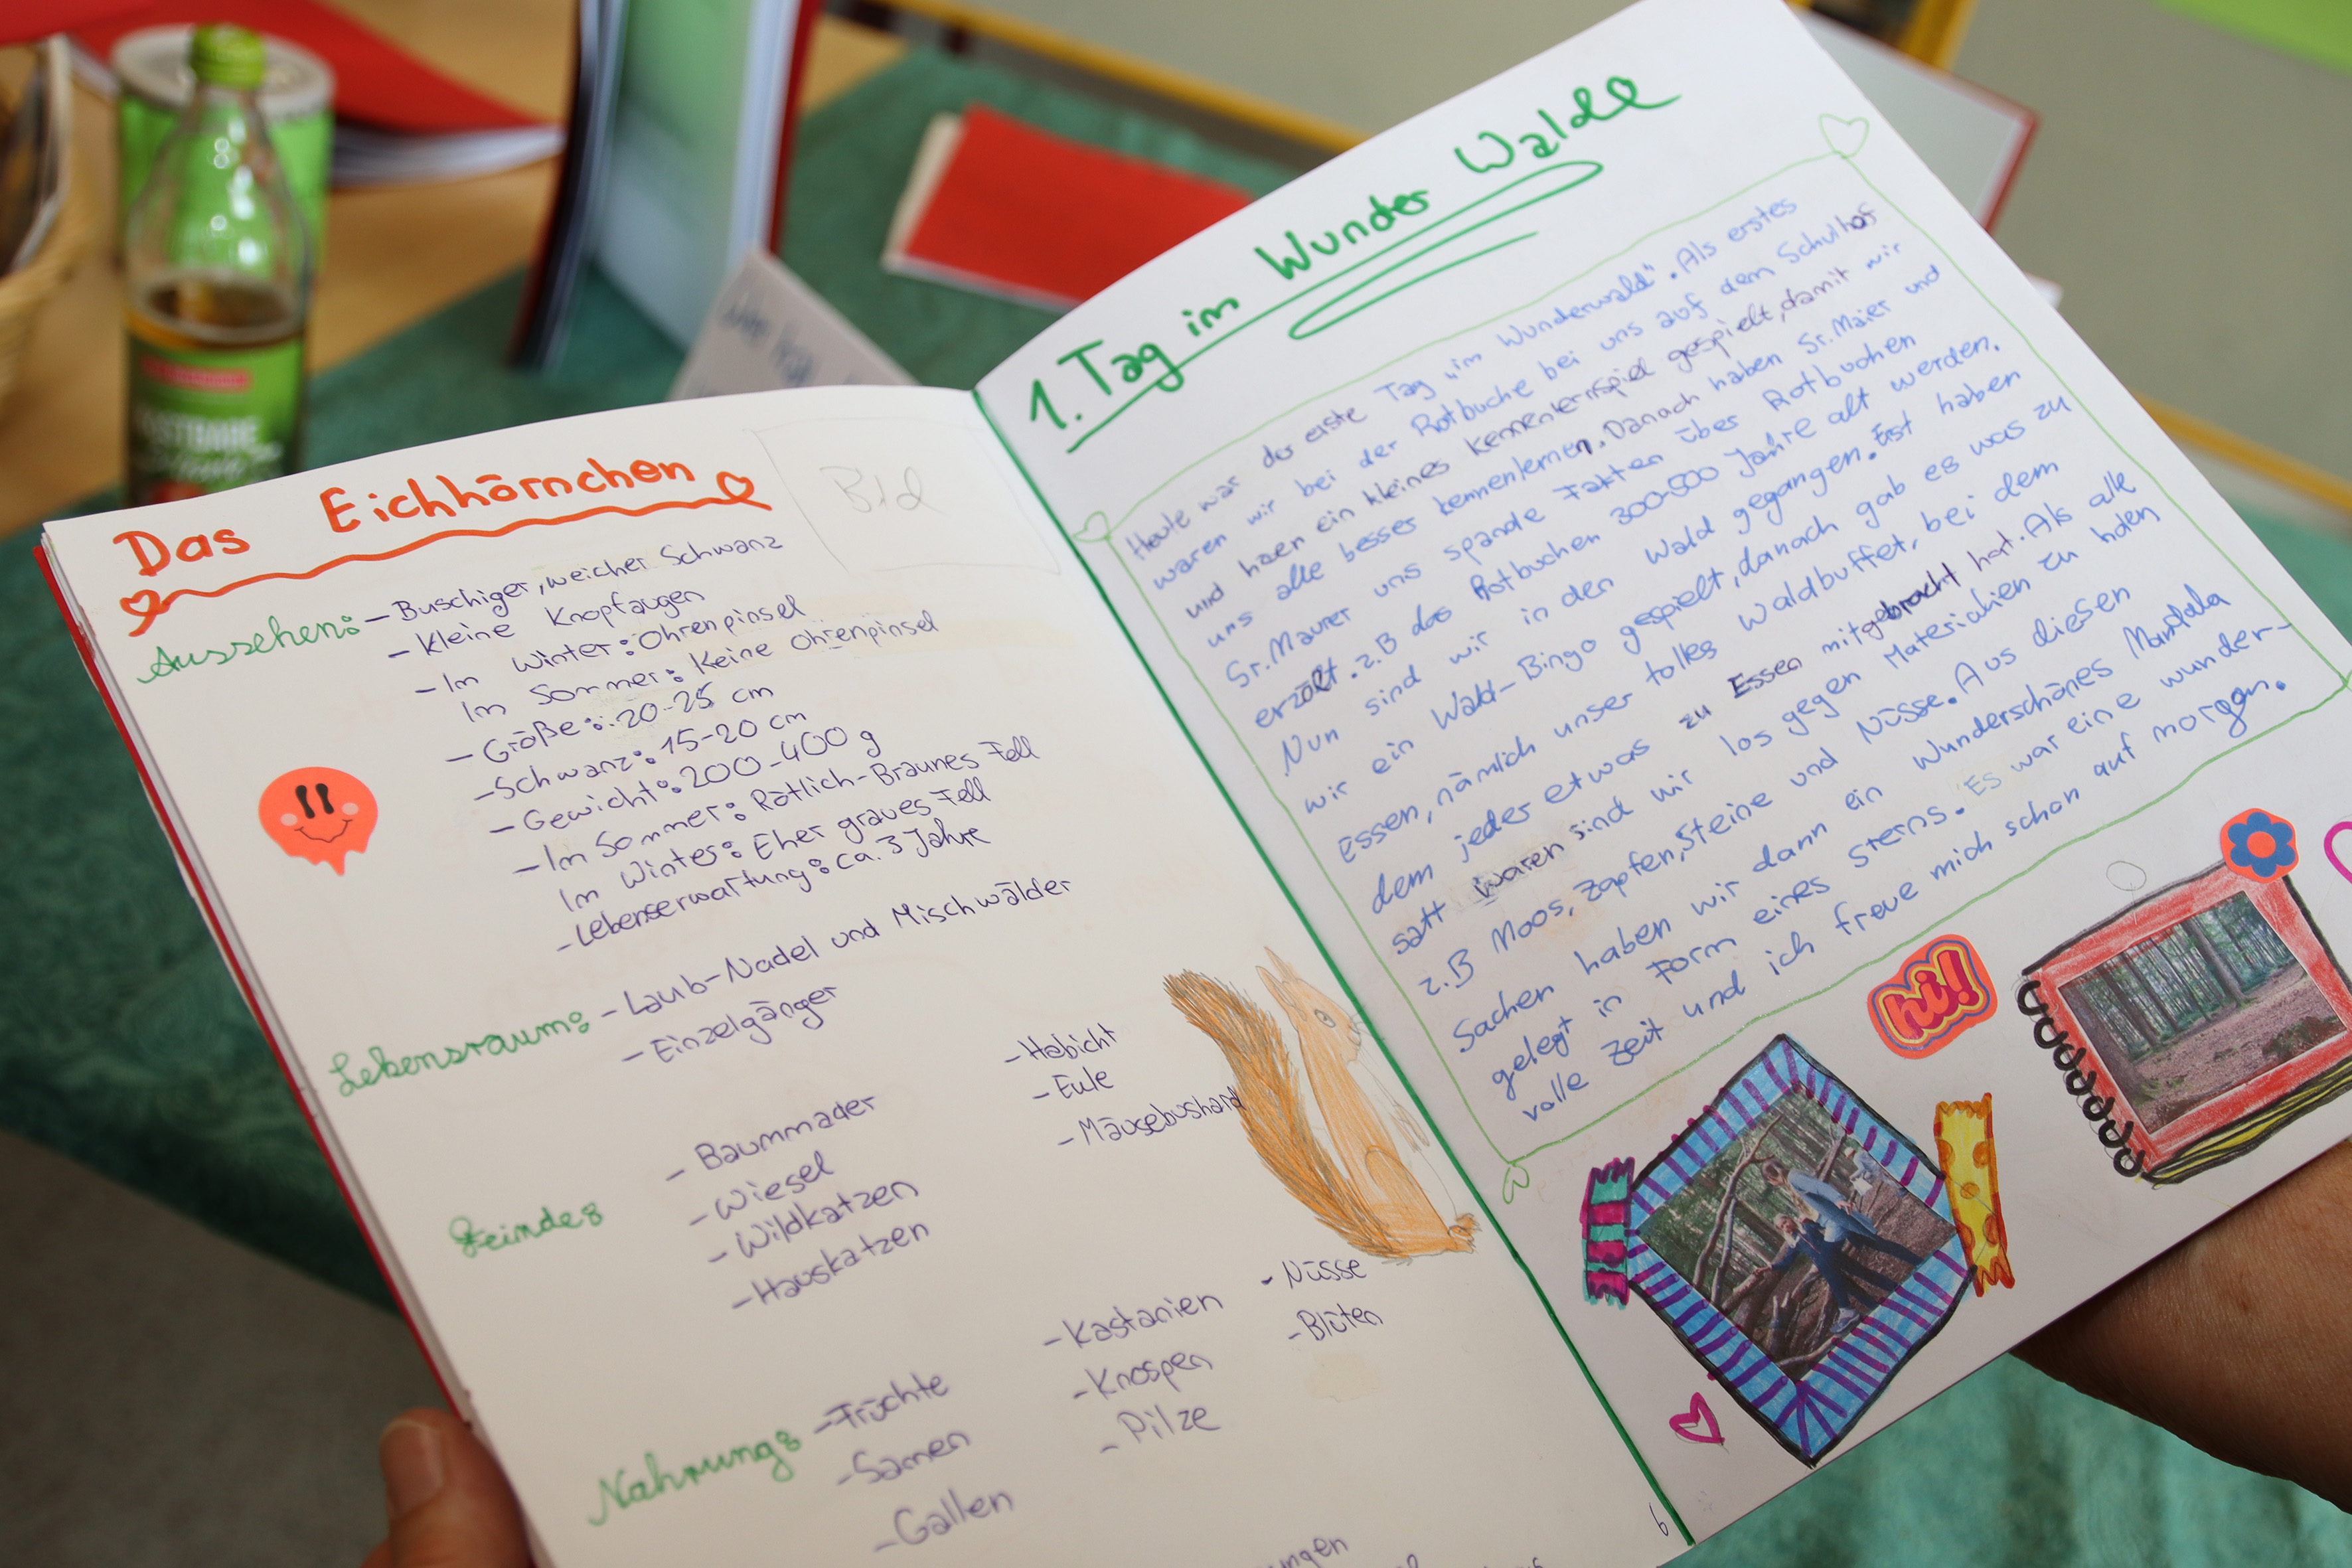 Das Eichhörnchen
Bild
Aussehen:
- Buschiger, weicher Schwanz
- Kleine Knopfaugen
- Im Winter: Ohrenpinsel
Im Sommer: Keine Ohrenpinsel
- Größe: 20-25 cm
- Schwanz: 15-20 cm
- Gewicht: 200-400 g
- Im Sommer: Rötlich-Braunes Fell
Im Winter: Eher graues Fell
- Lebenserwartung: ca. 3 Jahre
Lebensraum:
- Laub-Nadel und Mischwälder
- Einzelgänger
Feinde:
- Baummader
- Wiesel
- Wildkatzen
- Hauskatzen
- Habicht
- Eule
- Mäusebushard
Nahrung:
- Früchte
- Samen
- Gallen
- Kastanien
- Knospen
- Pilze
- Nüsse
- Blüten
1. Tag im Wunder Walde
Heute war der erste Tag „im Wunderwald". Als erstes
waren wir bei der Rotbuche bei uns auf dem Schulhof
und haen ein kleines Kennenlernspiel gespielt, damit wir
uns alle besser kennenlernen. Danach haben Sr. Maier und
Sr. Maurer uns spande Fakten über Rotbuchen
erzält. z.B das Rotbuchen 300-500 Jahre alt werden.
Nun sind wir in den Wald gegangen. Erst haben
wir ein Wald-Bingo gespielt, danach gab es was zu
Essen, nämlich unser tolles Waldbuffet, bei dem
dem jeder etwas zu Essen mitgebracht hat. Als alle
satt waren sind wir los gegen Materialien zu holen
z.B Moos, Zapfen, Steine und Nüsse. Aus diesen
Sachen haben wir dann ein Wunderschönes Mandala
gelegt in Form eines Sterns. Es war eine wunder-
volle Zeit und ich freue mich schon auf morgen.
hi!
6